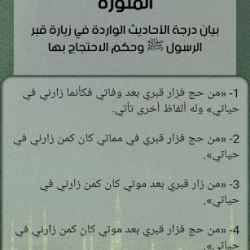 المنورة
بيان درجة الأحاديث الواردة في زيارة قبر
الرسول ﷺ وحكم الاحتجاج بها
1- «من حج فزار قبري بعد وفاتي فكأنما زارني في
حياتي» وله ألفاظ أخرى تأتي.
2- «من حج فزار قبري في مماتي كان كمن زارني في
حياتي».
3- «من زار قبري بعد موتي كان كمن زارني في
حياتي».
4- «من حج فزار قبري بعد موتي كان كمن زارني في